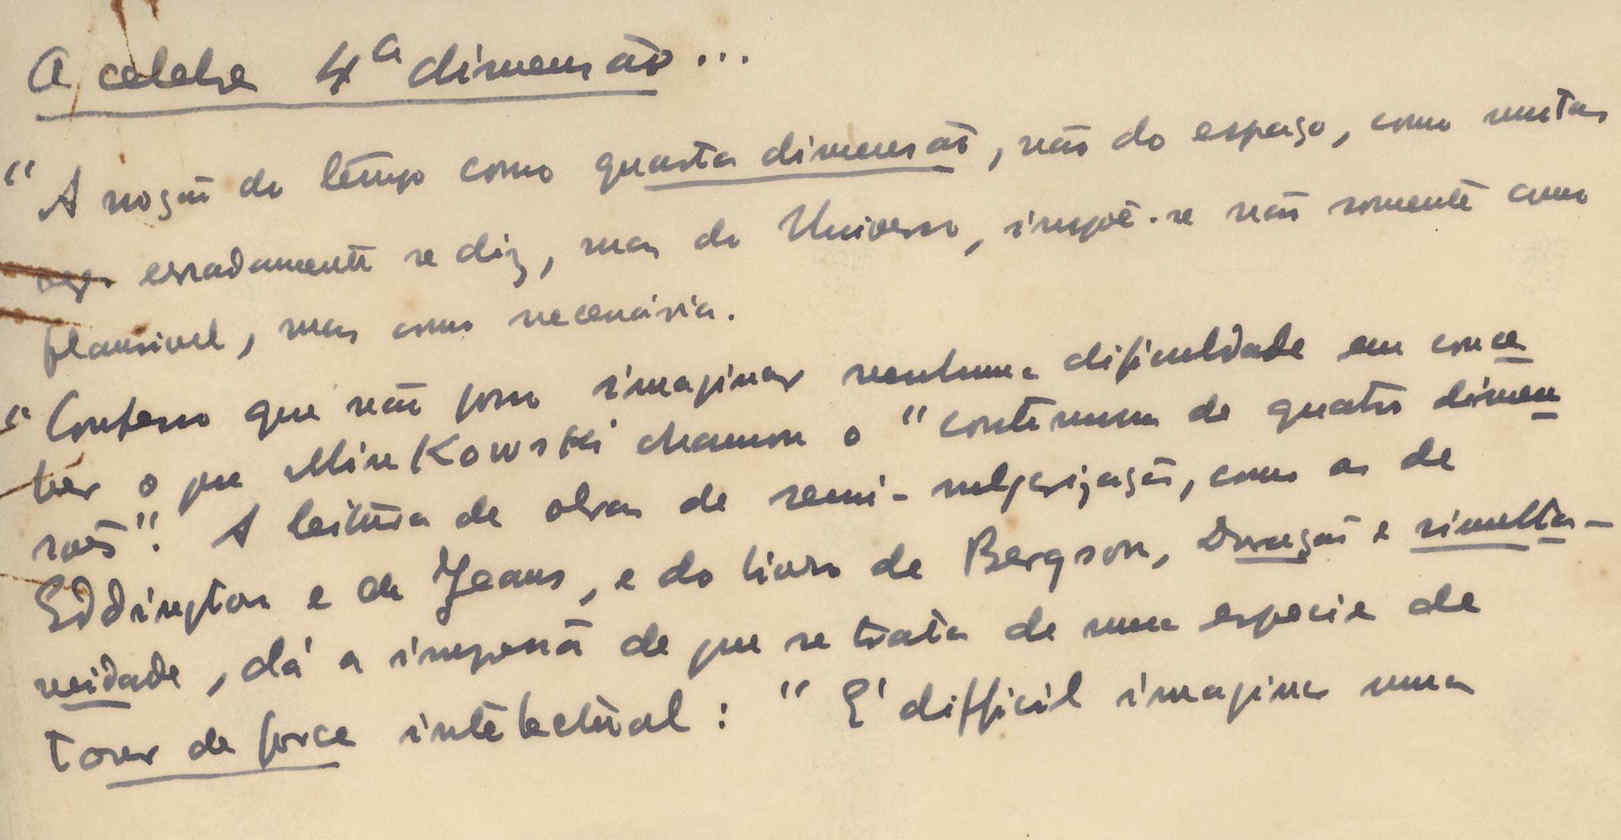 A celebre 4ª dimensão...
"A noção do tempo como quarta dimensão, não do espaço, como muitas
erradamente se diz, mas do Universo, impõe-se não somente como
plausivel, mas como necessária.
"Confesso que não posso imaginar nenhuma dificuldade em conce
ber o que Minkowski chamou o "continuum de quatro dimen
sões". A leitura de obras de semi-vulgarização, como as de
Eddington e de Jeans, e do livro de Bergson, Duração e simulta-
neidade, dá a impressão de que se trata de uma especie de
tour de force intelectual: "É difficil imaginar uma